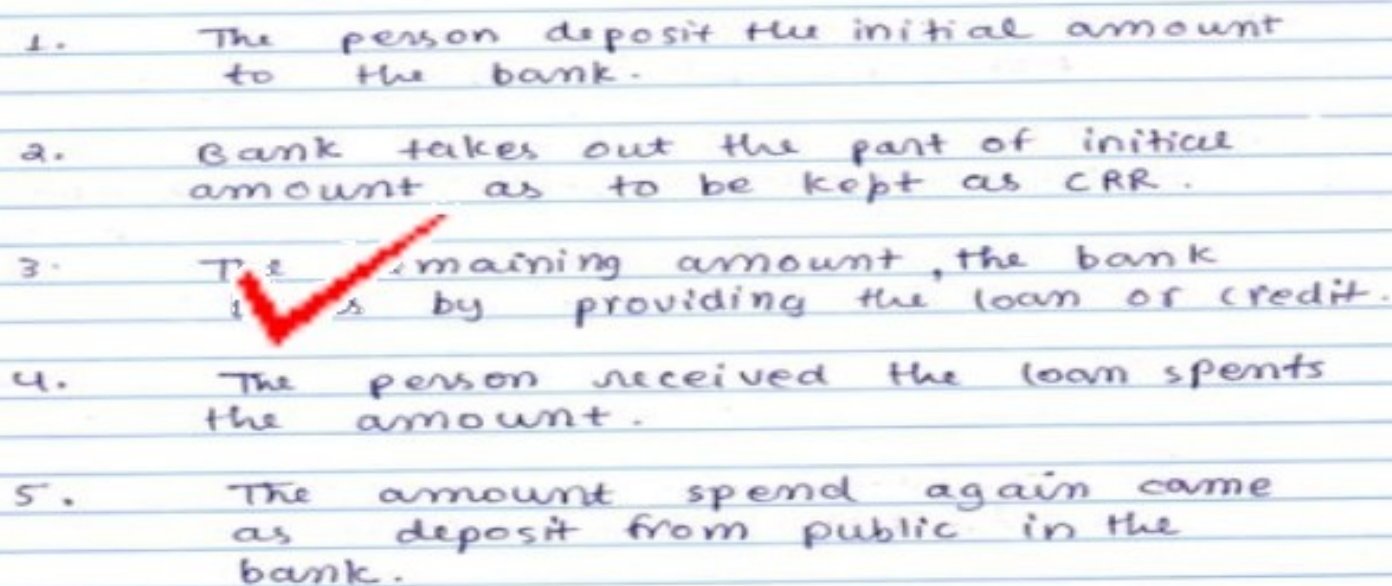 1. The person deposit the initial amount
to the bank.
2. Bank takes out the part of initial
amount as to be kept as CRR.
3. amount, the bank
by providing the loan or credit.
4. The person received the loan spents
the amount.
5. The amount spend again came
as deposit from public in the
bank.